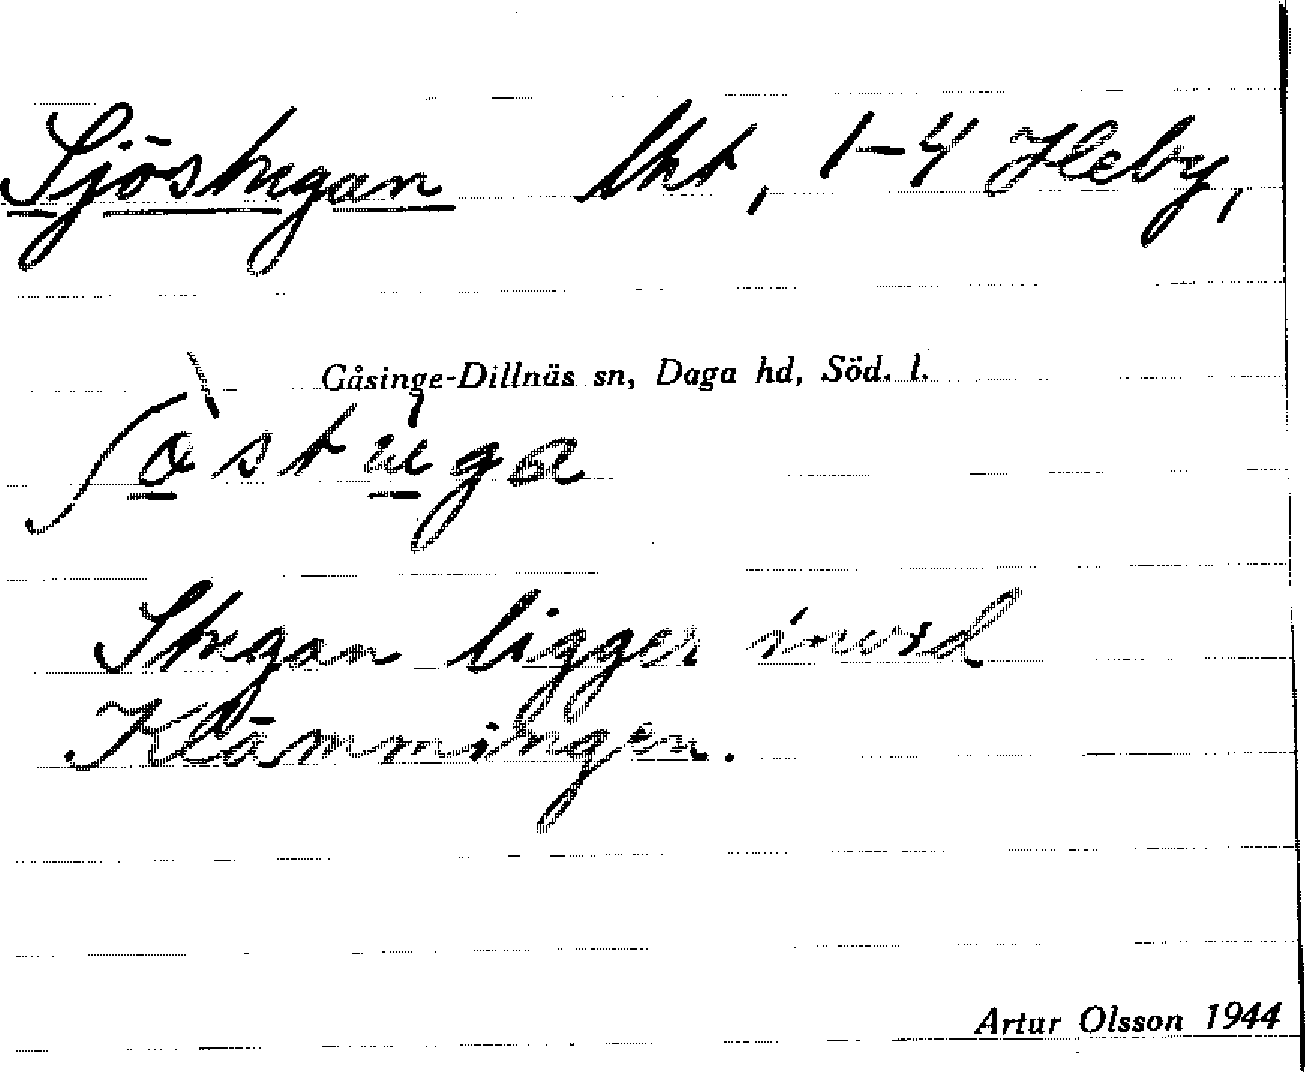 Sjöstugan lht, 1-4 Heby,
Gåsinge-Dillnäs sn, Daga hd, Söd. l.
ʃöstuga
Stugan ligger invid
Klämmingen.
Artur Olsson 1944